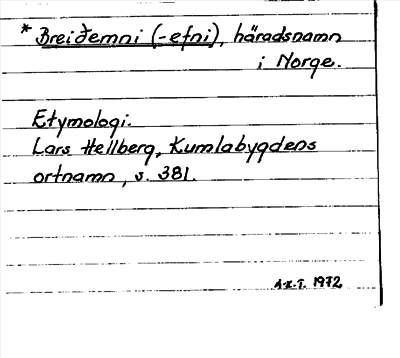 * Breiðemni (-efni), häradsnamn
i Norge.
Etymologi.
Lars Hellberg, Kumlabygdens
ortnamn, s. 381.
1972